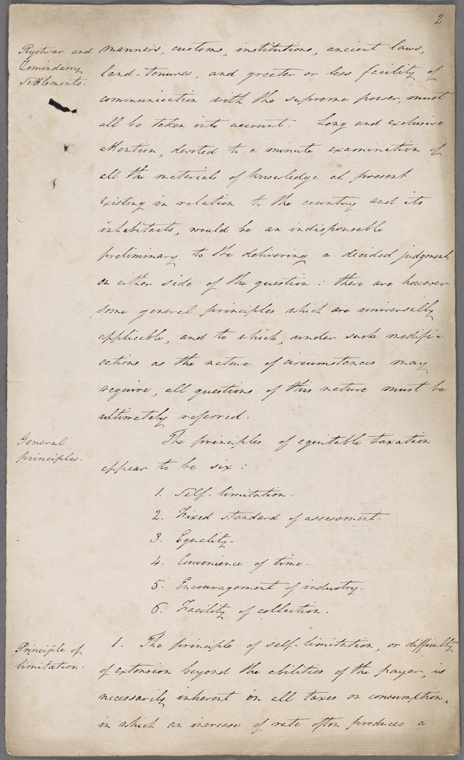 2
Ryotwar and
Zemindarry
Settlements.
manners, customs, institutions, ancient laws,
land-tenures, and greater or less facility of
communication with the supreme power, must
all be taken into account. Long and exclusive
attention, devoted to a minute examination of
all the materials of knowledge at present
existing in relation to the country and its
inhabitants, would be an indispensable
preliminary to the delivering a decided judgment
on either side of the question: there are however
some general principles which are universally
applicable, and to which, under such modifi-
cations as the nature of circumstances may
require, all questions of this nature must be
ultimately referred.
General
principles.
The principles of equitable taxation
appear to be six:
1. Self-limitation.
2. Fixed standard of assessment.
3. Equality.
4. Convenience of time.
5. Encouragement of industry.
6. Facility of collection.
Principle of
limitation.
1. The principle of self-limitation, or difficulty
of extension beyond the abilities of the payer, is
necessarily inherent in all taxes on consumption,
in which an increase of rate often produces a